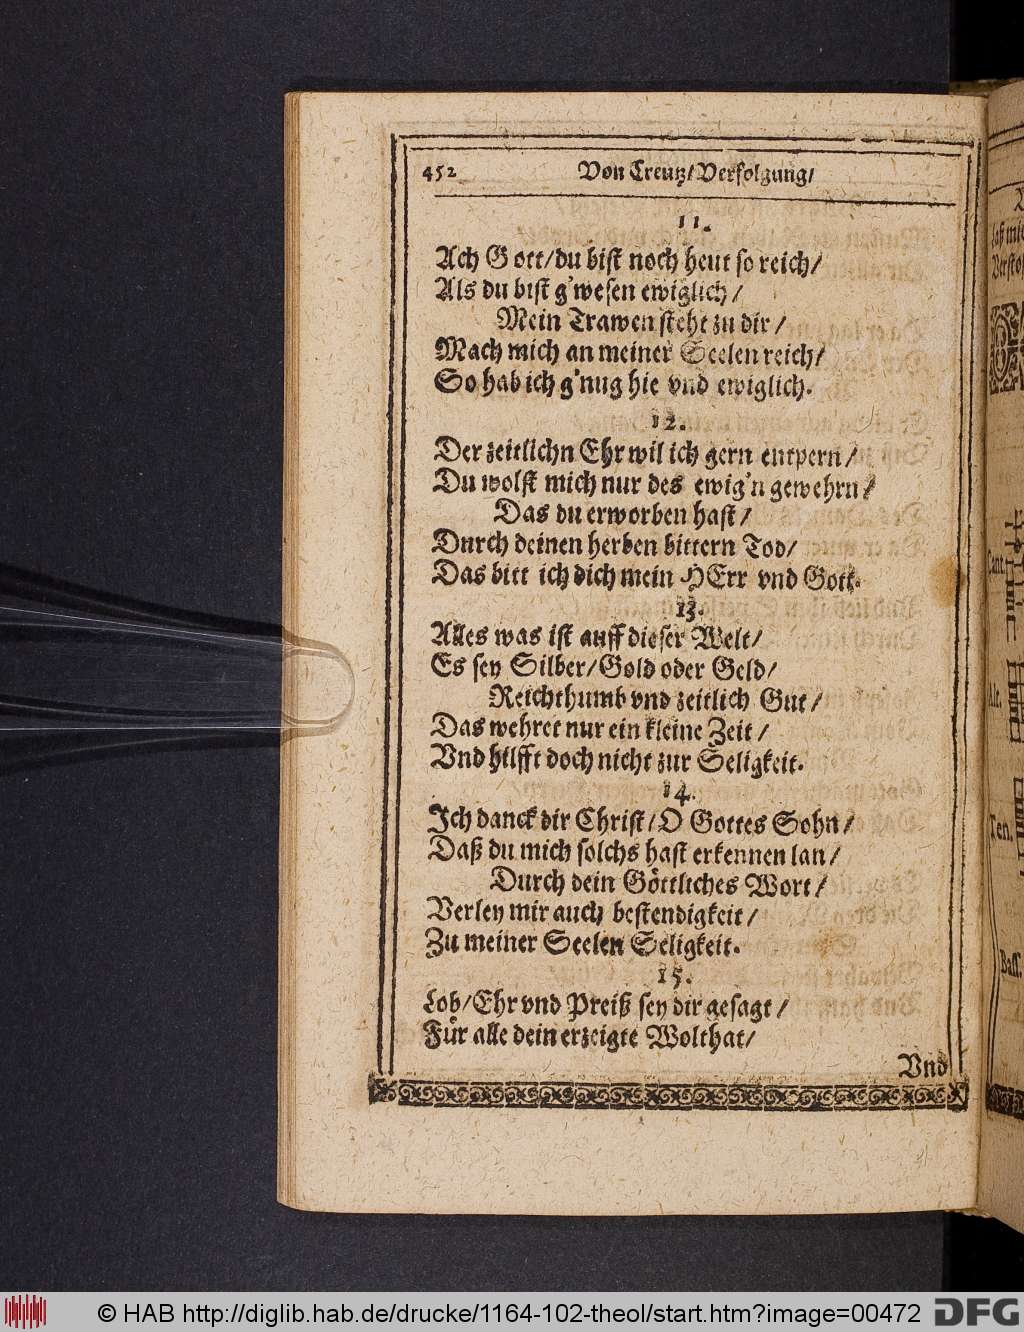 452 Von Creutz/Verfolgung/
11.
Ach Gott/du bist noch heut so reich/
Als du bist g'wesen ewiglich/
Mein Trawen steht zu dir/
Mach mich an meiner Seelen reich/
So hab ich g'nug hie vnd ewiglich.
12.
Der zeitlichn Ehr wil ich gern entpern/
Du wolst mich nur des ewig'n gewehrn/
Das du erworben hast/
Durch deinen herben bittern Tod/
Das bitt ich dich mein HErr vnd Gott.
13.
Alles was ist auff dieser Welt/
Es sey Silber/Gold oder Geld/
Reichthumb vnd zeitlich Gut/
Das wehret nur ein kleine Zeit/
Vnd hilfft doch nicht zur Seligkeit.
14.
Ich danck dir Christ/O Gottes Sohn/
Daß du mich solchs hast erkennen lan/
Durch dein Göttliches Wort/
Verley mir auch bestendigkeit/
Zu meiner Seelen Seligkeit.
15.
Lob/Ehr vnd Preiß sey dir gesagt/
Für alle dein erzeigte Wolthat/
Vnd
Cant.
Alt.
Ten.
Bass.
© HAB http://diglib.hab.de/drucke/1164-102-theol/start.htm?image=00472
DFG